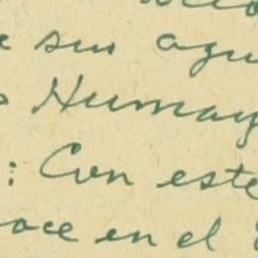 sus agu
Humay
: Con este
oce en el